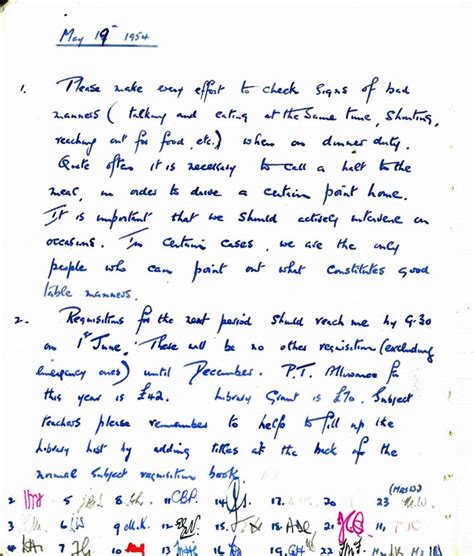 May 19th 1954
1. Please make every effort to check signs of bad
manners (talking and eating at the same time, shouting,
reaching out for food, etc.) when on dinner duty.
Quite often it is necessary to call a halt to the
meal, in order to drive a certain point home.
It is important that we should actively intervene on
occasions. In certain cases, we are the only
people who can point out what constitutes good
table manners.
2. Requisitions for the next period should reach me by 9.30
on 1st June. There will be no other requisition (excluding
emergency ones) until December. P.T. Allowance for
this year is £42. Library Grant is £70. Subject
teachers please remember to help to fill up the
library list by adding titles at the back of the
normal subject requisition book.
2 5 8 11 CBP. 14 17 20 23
3 6 9 12 15 18 21
4 7 10 13 16 19 22